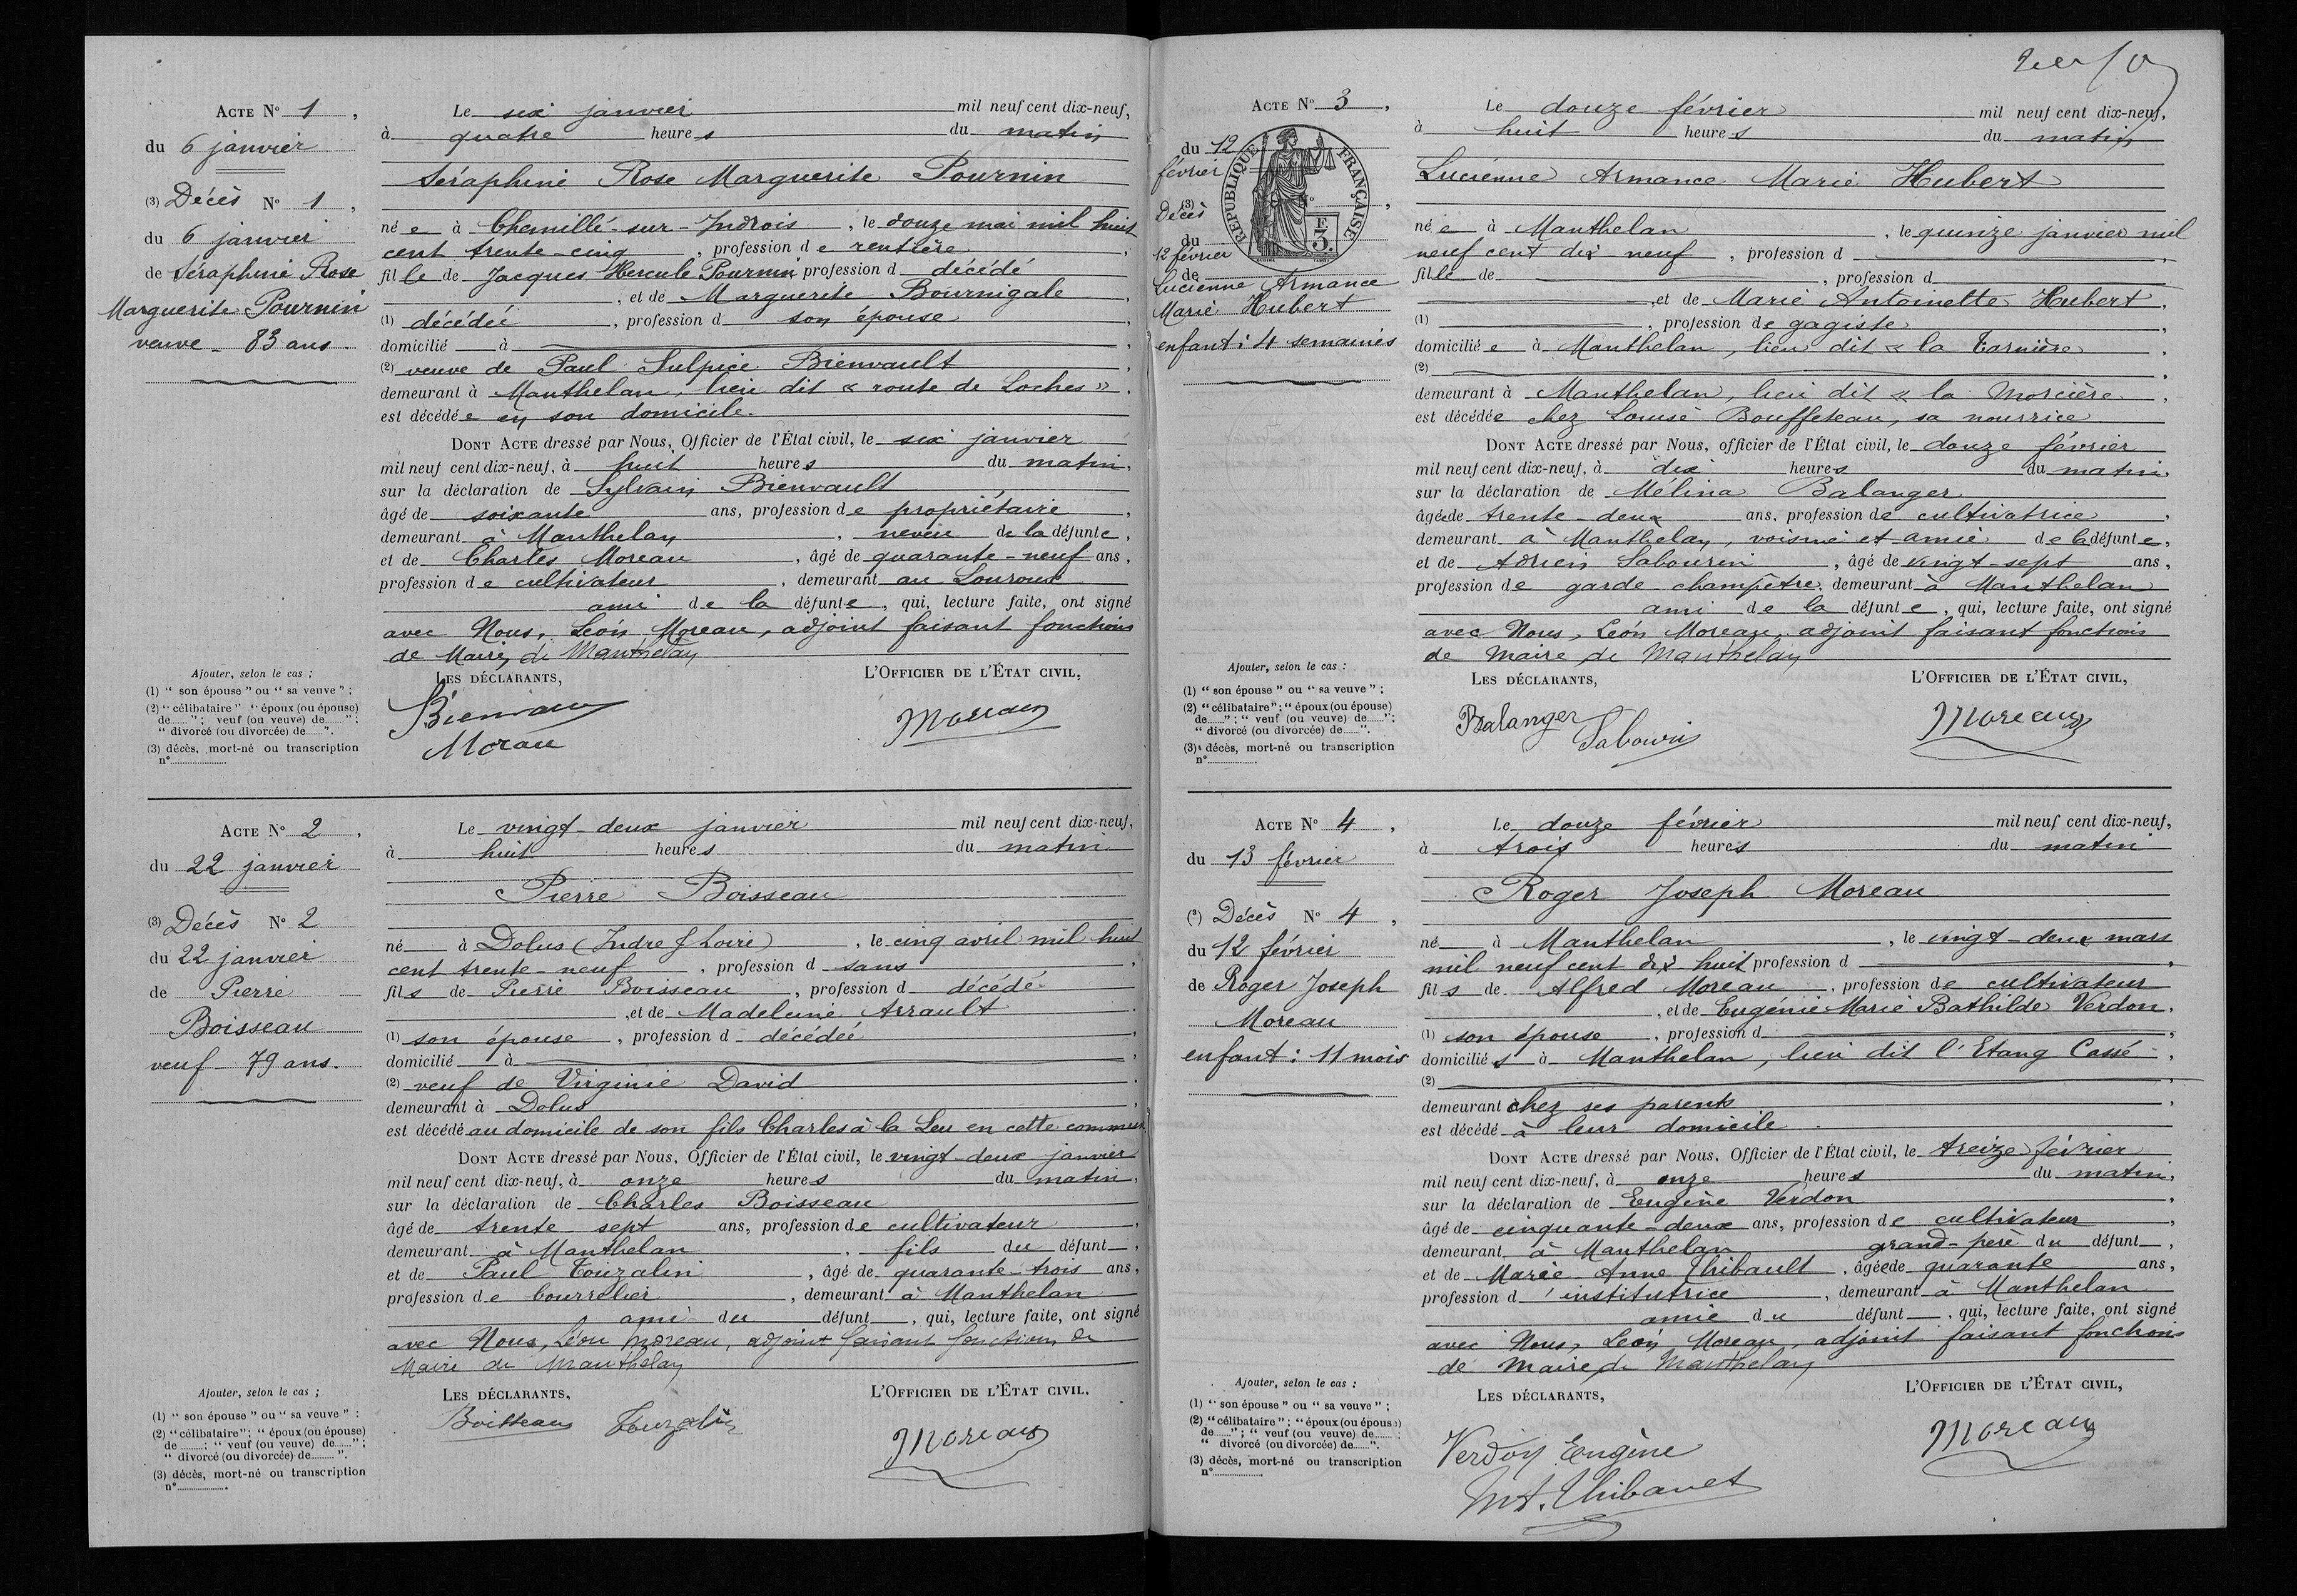 ACTE Nº 1,
du 6 janvier
(3) Décès Nº 1,
du 6 janvier
de Séraphine Rose
Marguerite Pournin
veuve - 83 ans.
Le six janvier mil neuf cent dix-neuf,
à quatre heures du matin
Séraphine Rose Marguerite Pournin
née à Chemillé-sur-Indrois, le douze mai mil huit
cent trente-cinq, profession de rentière,
fille de Jacques Hercule Pournin profession d décédé
, et de Marguerite Bournigale,
(1) décédée, profession d son épouse,
domicilié à
(2) veuve de Paul Sulpice Bienvault,
demeurant à Manthelan, lieu dit « route de Loches ».
est décédée en son domicile.
DONT ACTE dressé par Nous, Officier de l'État civil, le six janvier
mil neuf cent dix-neuf, à huit heures du matin,
sur la déclaration de Sylvain Bienvault
âgé de soixante ans, profession de propriétaire,
demeurant à Manthelan, neveu de la défunte,
et de Charles Moreau, âgé de quarante-neuf ans,
profession de cultivateur, demeurant au Louroux
ami de la défunte, qui, lecture faite, ont signé
avec Nous, Léon Moreau, adjoint faisant fonctions
de Maire, de Manthelan
Ajouter, selon le cas ;
(1) "son épouse" ou "sa veuve" ;
(2) "célibataire" "époux (ou épouse)
de......" ; veuf (ou veuve) de......" ;
" divorcé (ou divorcée) de......".
(3) décès, mort-né ou transcription
nº
LES DÉCLARANTS,
L'OFFICIER DE L'ÉTAT CIVIL,
Moreau
ACTE Nº 2,
du 22 janvier
(3) Décès Nº 2
du 22 janvier
de Pierre
Boisseau
veuf - 79 ans.
Le vingt-deux janvier mil neuf cent dix-neuf,
à huit heures du matin
Pierre Boisseau
né à Dolus (Indre & Loire), le cinq avril mil huit
cent trente-neuf, profession d sans,
fils de Pierre Boisseau, profession d décédé
, et de Madeleine Arrault.
(1) son épouse, profession d décédée,
domicilié à,
(2) veuf de Virginie David.
demeurant à Dolus,
est décédé au domicile de son fils Charles à la Leu en cette commune
DONT ACTE dressé par Nous, Officier de l'État civil, le vingt-deux janvier
mil neuf cent dix-neuf, à onze heures du matin,
sur la déclaration de Charles Boisseau
âgé de trente sept ans, profession de cultivateur,
demeurant à Manthelan, fils du défunt,
et de Paul Touzalin, âgé de quarante-trois ans,
profession de bourrelier, demeurant à Manthelan
ami du défunt, qui, lecture faite, ont signé
avec Nous, Léon Moreau, adjoint faisant fonctions de
Maire de Manthelan
Ajouter, selon le cas ;
(1) "son épouse" ou "sa veuve" :
(2) "célibataire" ; "époux (ou épouse)
de......; "veuf (ou veuve) de......" ;
" divorcé (ou divorcée) de......".
(3) décès, mort-né ou transcription
nº
LES DÉCLARANTS,
L'OFFICIER DE L'ÉTAT CIVIL.
Boisseau Touzalin
Moreau
ACTE Nº 3,
du 12
février
RÉPUBLIQUE FRANÇAISE
E
3.
(3)
Décès Nº
du
12 février
de
Lucienne Armance
Marie Hubert
enfant : 4 semaines
Le douze février mil neuf cent dix-neuf,
à huit heures du matin
Lucienne Armance Marie Hubert
née à Manthelan, le quinze janvier mil
neuf cent dix neuf, profession d,
fille de, profession d
, et de Marie Antoinette Hubert,
(1), profession de gagiste,
domiciliée à Manthelan, lieu dit « la Tarnière.
(2)
demeurant à Manthelan, lieu dit « la Morcière,
est décédée chez Louise Bouffeteau, sa nourrice
DONT ACTE dressé par Nous, officier de l'État civil, le douze février
mil neuf cent dix-neuf, à dix heures du matin,
sur la déclaration de Mélina Balanger
âgée de trente-deux ans, profession de cultivatrice,
demeurant à Manthelan, voisine et amie de la défunte,
et de Adrien Sabourin, âgé de vingt-sept ans,
profession de garde champêtre, demeurant à Manthelan
ami de la défunte, qui, lecture faite, ont signé
avec Nous, Léon Moreau, adjoint faisant fonctions
de Maire de Manthelan
Ajouter, selon le cas :
(1) "son épouse" ou "sa veuve" ;
(2) "célibataire" ; "époux (ou épouse)
de......" ; "veuf (ou veuve) de......" ;
" divorcé (ou divorcée) de......".
(3) décès, mort-né ou transcription
nº
LES DÉCLARANTS,
L'OFFICIER DE L'ÉTAT CIVIL,
Balanger Sabourin
Moreau
ACTE Nº 4,
du 13 février
(3) Décès Nº 4,
du 12 février
de Roger Joseph
Moreau
enfant : 11 mois
Le douze février mil neuf cent dix-neuf,
à trois heures du matin
Roger Joseph Moreau
né à Manthelan, le vingt-deux mars
mil neuf cent dix huit profession d,
fils de Alfred Moreau, profession de cultivateur
, et de Eugénie Marie Bathilde Verdon,
(1) son épouse, profession d,
domiciliés à Manthelan, lieu dit l'Etang Cassé,
(2)
demeurant chez ses parents,
est décédé à leur domicile.
DONT ACTE dressé par Nous, Officier de l'État civil, le treize février
mil neuf cent dix-neuf, à onze heures du matin,
sur la déclaration de Eugène Verdon,
âgé de cinquante-deux ans, profession de cultivateur,
demeurant à Manthelan grand-père du défunt,
et de Marie Anne Thibault, âgée de quarante ans,
profession d'institutrice, demeurant à Manthelan
amie du défunt, qui, lecture faite, ont signé
avec Nous, Léon Moreau, adjoint faisant fonctions
de Maire de Manthelan
Ajouter, selon le cas :
(1) "son épouse" ou "sa veuve" ;
(2) "célibataire" ; "époux (ou épouse)
de......" ; "veuf (ou veuve) de......;
" divorcé (ou divorcée) de......".
(3) décès, mort-né ou transcription
nº
LES DÉCLARANTS,
L'OFFICIER DE L'ÉTAT CIVIL,
Verdon Eugène
Moreau